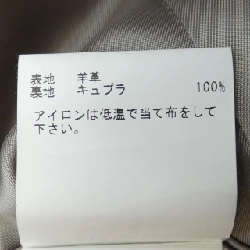 表地 羊革
裏地 キュプラ 100%
アイロンは低温で当て布をして
下さい。